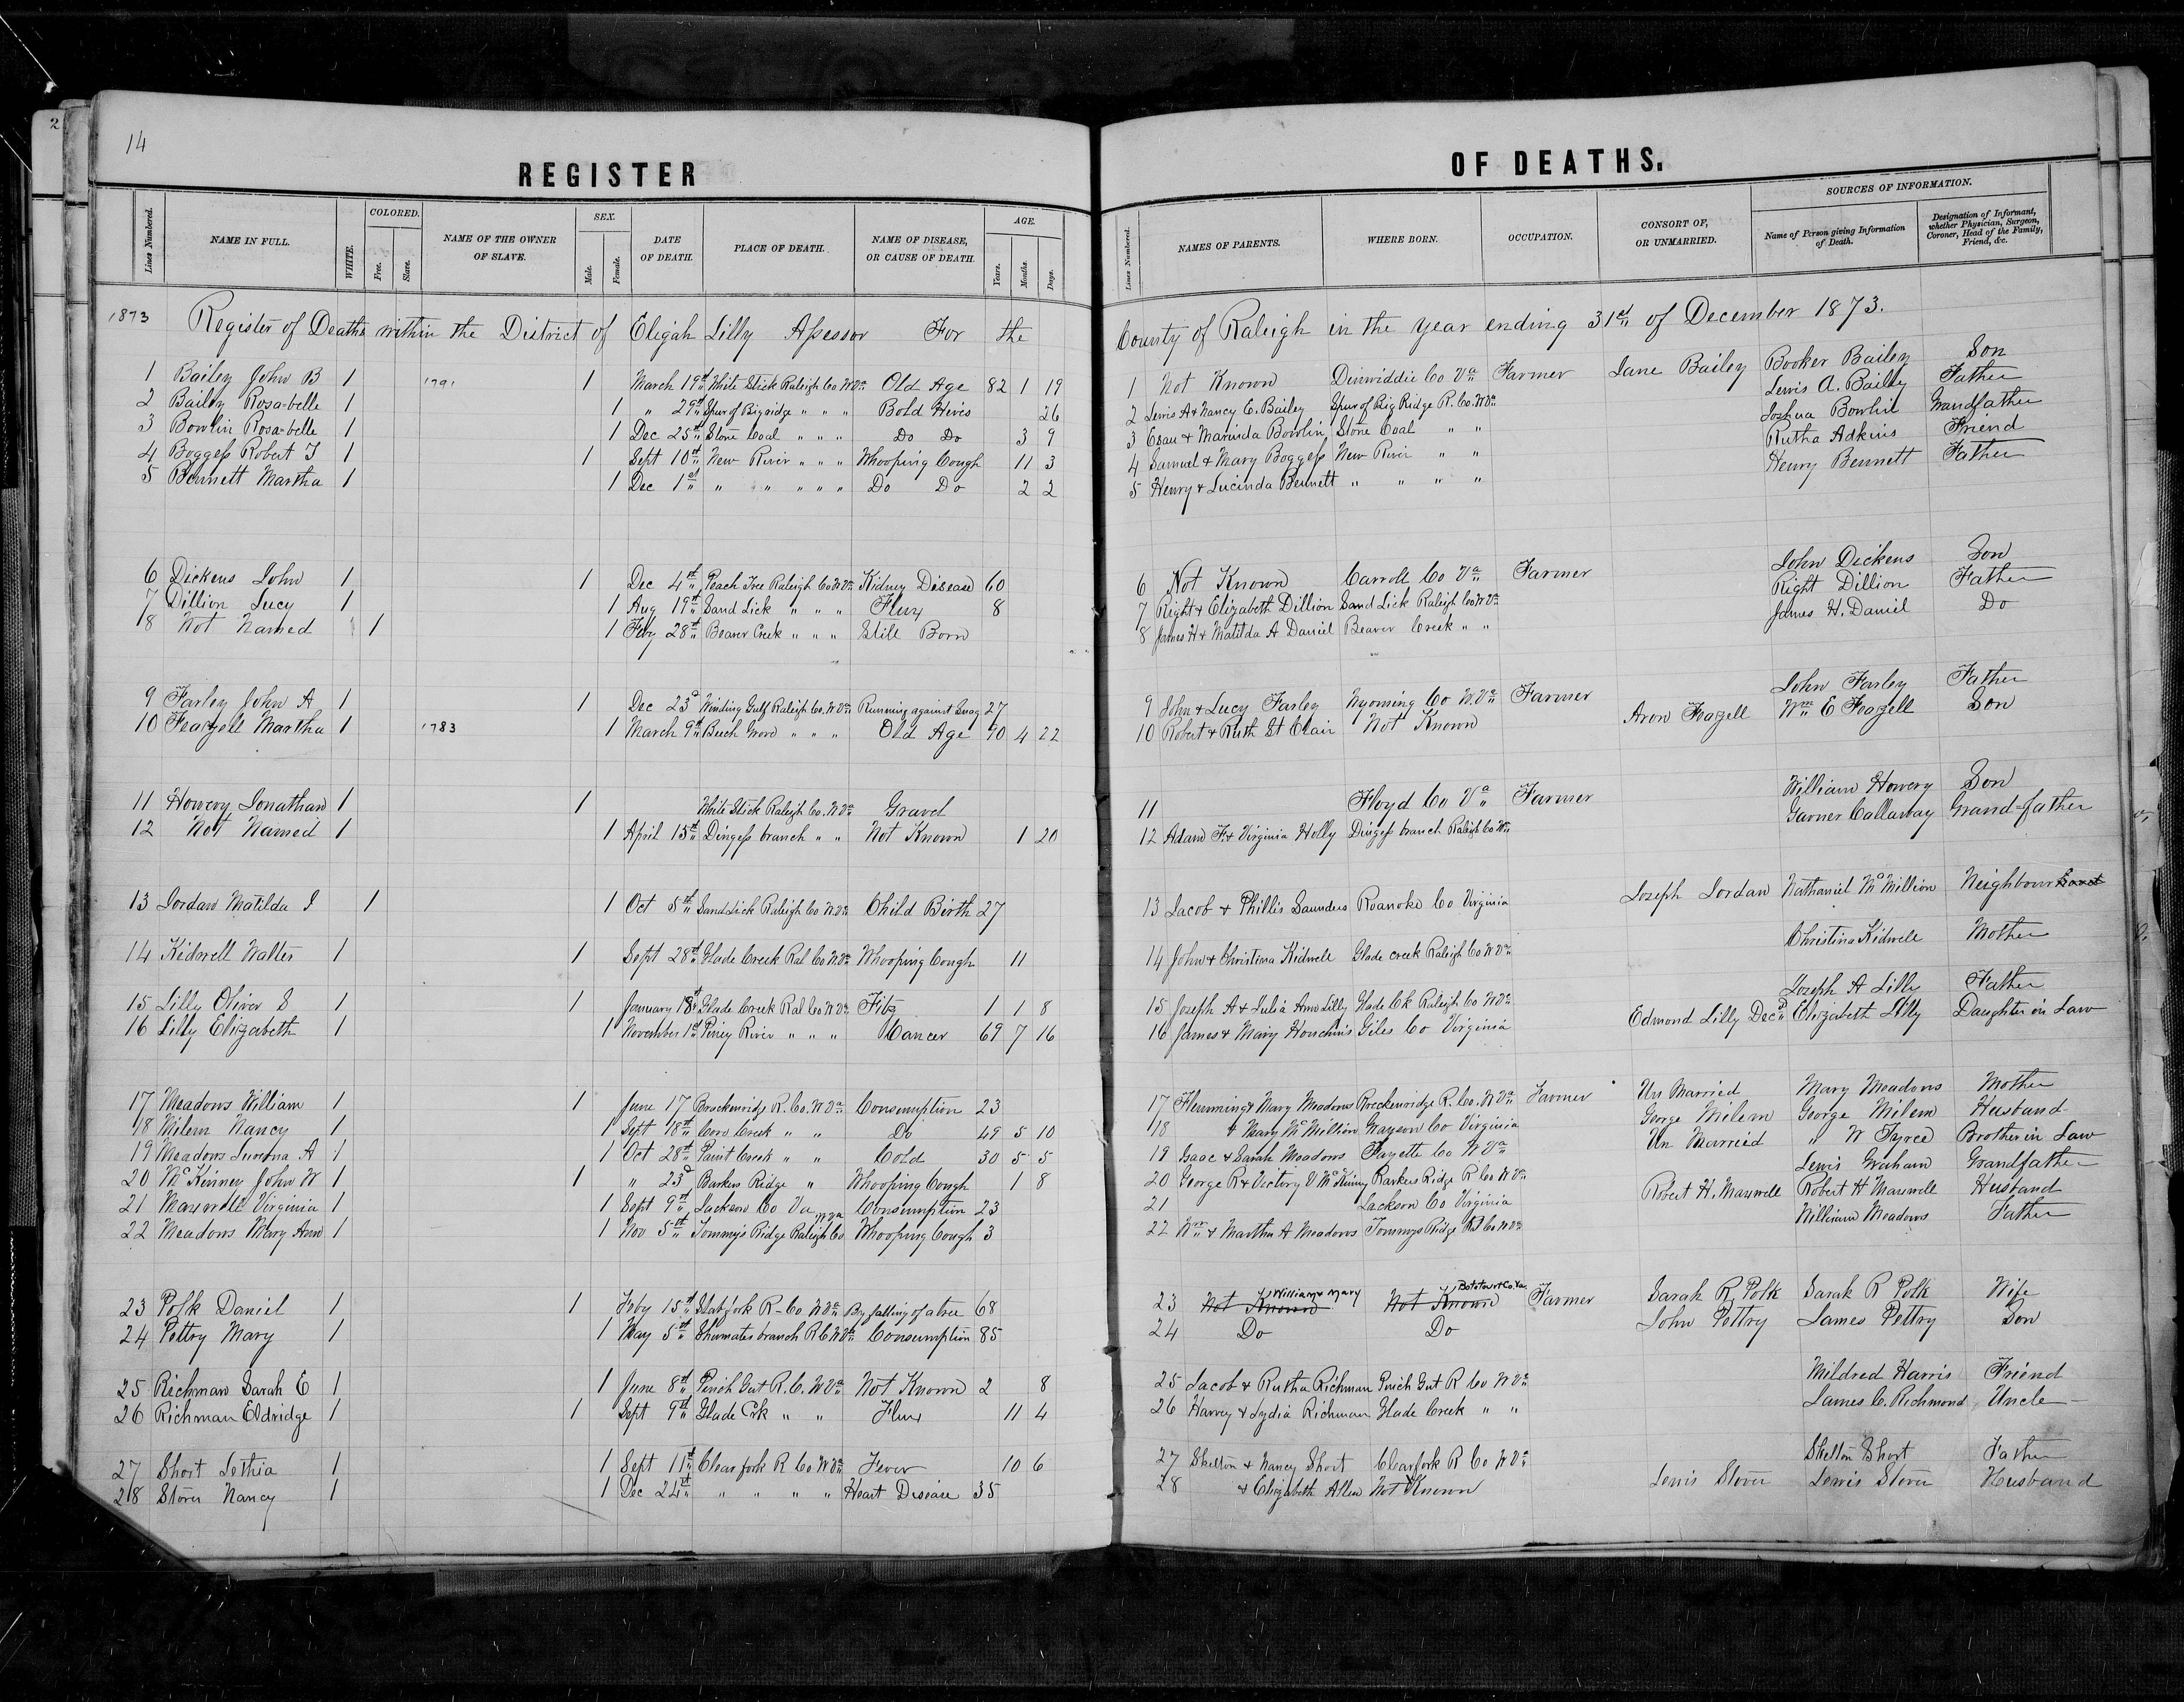 2
14
REGISTER
OF DEATHS.
Lines Numbered.
NAME IN FULL.
WHITE.
COLORED.
Free.
Slave.
NAME OF THE OWNER OF SLAVE.
SEX.
Male.
Female.
DATE OF DEATH.
PLACE OF DEATH.
NAME OF DISEASE, OR CAUSE OF DEATH.
AGE.
Years.
Months.
Days.
Lines Numbered.
NAMES OF PARENTS.
WHERE BORN.
OCCUPATION.
CONSORT OF, OR UNMARRIED.
SOURCES OF INFORMATION.
Name of Person giving Information of Death.
Designation of Informant, whether Physician, Surgeon, Coroner, Head of the Family, Friend, &c.
1873 Register of Deaths within the District of Eligah Lilly Assessor For the County of Raleigh in the year ending 31st of December 1873.
1 Bailey John B 1 1791 1 March 19th White Stick Raleigh Co W Va Old Age 82 1 19 1 Not Known Dinwiddie Co Va Farmer Jane Bailey Booker Bailey Son
2 Bailey Rosa-belle 1 1 " 29th Spur of Big ridge " " " Bold Hives 26 2 Lewis A & Nancy E. Bailey Spur of Big Ridge R. Co. W Va Lewis A. Bailey Father
3 Bowlin Rosa-belle 1 1 Dec 25th Stone Coal " " " Do Do 3 9 3 Esau & Marinda Bowlin Stone Coal " " Joshua Bowlin Grandfather
4 Boggess Robert J 1 1 Sept 10th New River " " " Whooping Cough 11 3 4 Samuel & Mary Boggess New River " " Rutha Adkins Friend
5 Bennett Martha 1 1 Dec 1st " " " " " Do Do 2 2 5 Henry & Lucinda Bennett " " " " Henry Bennett Father
6 Dickens John 1 1 Dec 4th Peach Tree Raleigh Co W Va Kidney Disease 60 6 Not Known Carroll Co Va Farmer John Dickens Son
7 Dillion Lucy 1 1 Aug 19th Sand Lick " " " Flux 8 7 Right & Elizabeth Dillion Sand Lick Raleigh Co W Va Right Dillion Father
8 Not Named 1 1 Feby 28th Beaver Creek " " " Still Born 8 James H & Matilda A Daniel Beaver Creek " " James H. Daniel Do
9 Farley John A 1 1 Dec 23d Winding Gulf Raleigh Co. W Va Running against Snag 27 9 John & Lucy Farley Wyoming Co W. Va Farmer John Farley Father
10 Feazell Martha 1 1783 1 March 9th Beech Grove " " " Old Age 90 4 22 10 Robert & Ruth St Clair Not Known Aron Feazell Wm E Feazell Son
11 Howery Jonathan 1 1 White Stick Raleigh Co. W Va Gravel 11 Floyd Co Va Farmer William Howery Son
12 Not Named 1 1 April 15th Dingess branch " " Not Known 1 20 12 Adam F. & Virginia Holly Dingess branch Raleigh Co W Va Garner Callaway Grand-father
13 Jordan Matilda J 1 1 Oct 5th Sand Lick Raleigh Co W Va Child Birth 27 13 Jacob & Phillis Saunders Roanoke Co Virginia Joseph Jordan Nathaniel McMillion Neighbour
14 Kidwell Walter 1 1 Sept 28th Glade Creek Ral Co W Va Whooping Cough 11 14 John & Christina Kidwell Glade creek Raleigh Co W Va Christina Kidwell Mother
15 Lilly Oliver S 1 1 January 18th Glade Creek Ral Co W Va Fits 1 1 8 15 Joseph A & Julia Ann Lilly Glade Ck Raleigh Co W Va Joseph A Lilly Father
16 Lilly Elizabeth 1 1 November 1st Piney River " " " Cancer 69 7 16 16 James & Mary Houchins Giles Co Virginia Edmond Lilly Decd Elizabeth Lilly Daughter in Law
17 Meadows William 1 1 June 17 Breckenridge R. Co. W Va Consumption 23 17 Flemming & Mary Meadows Breckenridge R. Co. W Va Farmer Un Married Mary Meadows Mother
18 Milem Nancy 1 1 Sept 18th Cove Creek " " Do 49 5 10 18 & Mary McMillion Grayson Co Virginia George Milem George Milem Husband
19 Meadows A 1 1 Oct 28th Paint Creek " " Cold 30 5 5 19 Isaac & Sarah Meadows Fayette Co W Va Un Married " W Tyree Brother in Law
20 McKinney John W 1 1 " 23d Barkers Ridge " Whooping Cough 1 8 20 George R & Victory V McKinney Barkers Ridge R Co W Va Lewis Graham Grandfather
21 Maxwell Virginia 1 1 Sept 9th Jackson Co Va Consumption 23 21 Jackson Co Virginia Robert H. Maxwell Robert H Maxwell Husband
22 Meadows Mary Ann 1 1 Nov 5th Tommys Ridge Raleigh Co W Va Whooping Cough 3 22 Wm & Martha A Meadows Tommys Ridge Ral Co W Va William Meadows Father
23 Polk Daniel 1 1 Feby 15th Slab fork R-Co W Va By falling of a tree 68 23 Not Known William & Mary Not Known Botetourt Co. Va. Farmer Sarah R Polk Sarah R Polk Wife
24 Pettry Mary 1 1 May 5th Shumates branch R C W Va Consumption 85 24 Do Do John Pettry James Pettry Son
25 Richman Sarah E 1 1 June 8th Pinch Gut R. C. W Va Not Known 2 8 25 Jacob & Rutha Richman Pinch Gut R Co W Va Mildred Harris Friend
26 Richman Eldridge 1 1 Sept 9th Glade Crk " " Flux 11 4 26 Harvey & Lydia Richman Glade Creek " " James C. Richmond Uncle
27 Short Lethia 1 1 Sept 11th Clear fork R Co W Va Fever 10 6 27 Skelton & Nancy Short Clear fork R Co W Va Skelton Short Father
28 Stover Nancy 1 1 Dec 24th " " " " Heart Disease 35 28 & Elizabeth Allen Not Known Lewis Stover Lewis Stover Husband